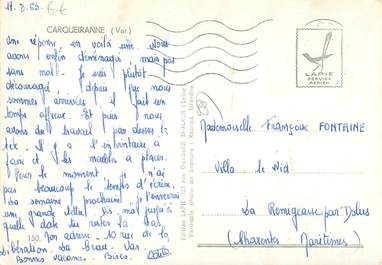 11.8.63
CARQUEIRANNE (Var)
une réponse en voilà une. Nous
avons enfin déménagé mais pas
sans mal. Je suis plutôt
découragé depuis que nous
sommes arrivés il fait un
temps affreux. Et puis nous
avons du travail par dessus la
tête. Il y a l'inventaire à
faire et les meubles à placer.
Pour le moment je n'ai
pas beaucoup le temps d'écrire.
La semaine prochaine je t'enverrai
une grande lettre. dis moi jusqu'à
quelle date tu restes là bas
150. Ton adresse 10 rue de la
libération. La Garde. Var
Bonnes vacances. Bises
LAPIE
SERVICE
AERIEN
Mademoiselle Françoise FONTAINE
Villa le Nid
La Remigeasse par Dolus
(Charentes Maritimes)